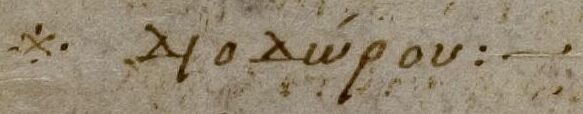 ※ Διοδώρου :—